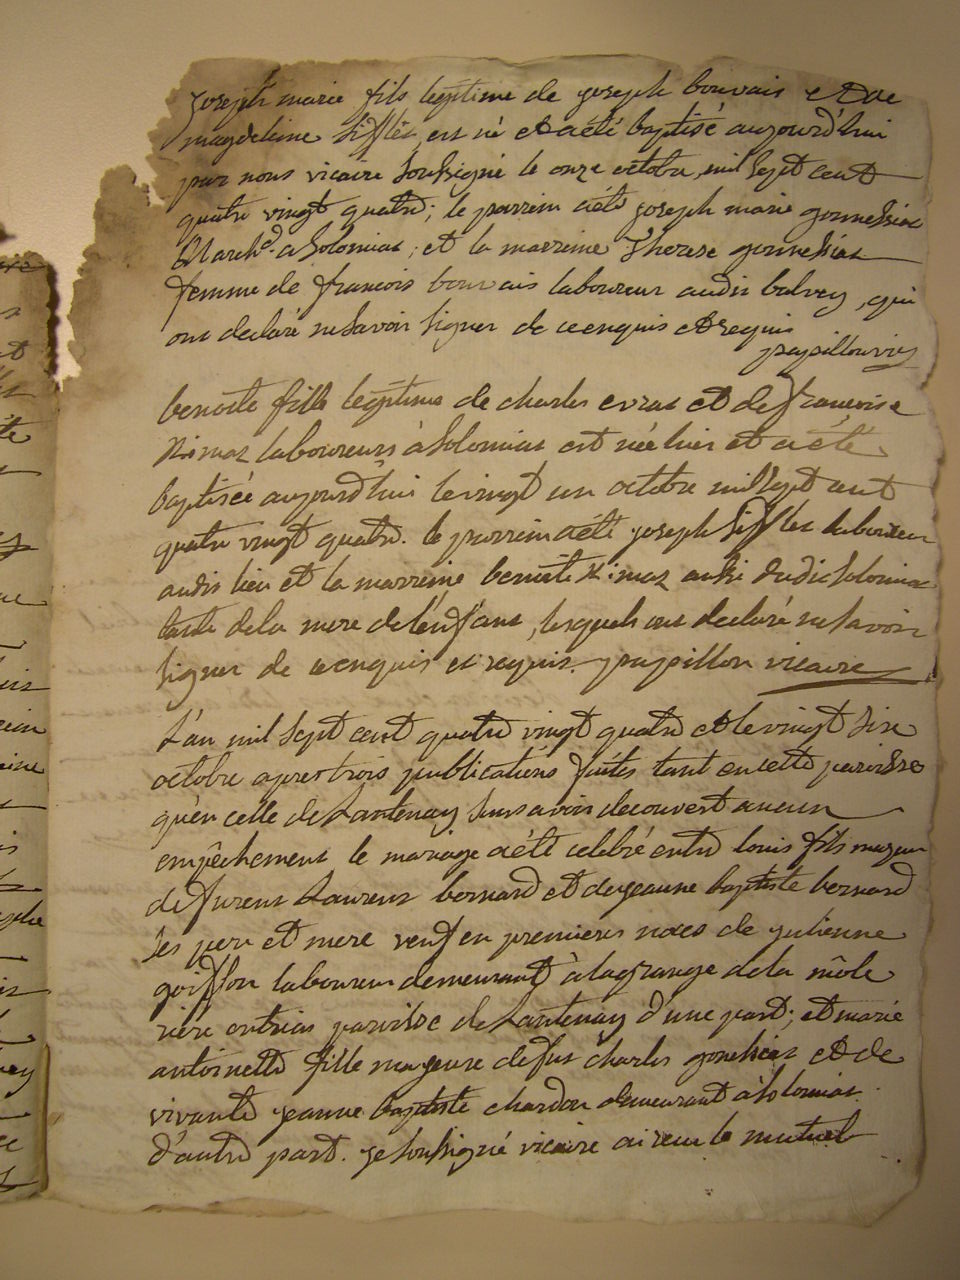 joseph marie fils legitime de joseph bouvais et de
magdeleine Sifflet, est né et a été baptisé aujourd'hui
par nous vicaire soussigné le onze octobre, mil sept cent
quatre vingt quatre; le parrein a été joseph marie gonnessiat
March.d a Solomiat; et la marreine Therese gonnessiat
femme de francois bouvais laboureur audit balvey, qui
ont declaré ne savoir signer de ce enquis et requis
papillon vic
benoite fille legitime de charles evrat et de francoise
laboureurs à Solomiat est née hier et a été
baptisée aujourd'hui le vingt un octobre mil sept cent
quatre vingt quatre. le parrein a été joseph Sifflet laboureur
audit lieu et la marreine benoite aussi dudit Solomiat
tante de la mere de l'enfant, lesquels ont declaré ne savoir
signer de ce enquis et requis. papillon vicaire
L'an mil sept cent quatre vingt quatre et le vingt six
octobre apres trois publications faites tant en cette paroisse
qu'en celle de Lantenay sans avoir decouvert aucun
empêchement le mariage a été celebré entre louis fils majeur
de furent Laurent bernard et de jeanne baptiste bernard
ses pere et mere veuf en premieres noces de julienne
goiffon laboureur demeurant à la grange de la môle
riere outriat paroisse de Lantenay d'une part; et marie
antoinette fille majeure de fut charles gonessiat et de
vivante jeanne baptiste chardon demeurant à Solomiat
d'autre part. je soussigné vicaire ai reçu le mutuel